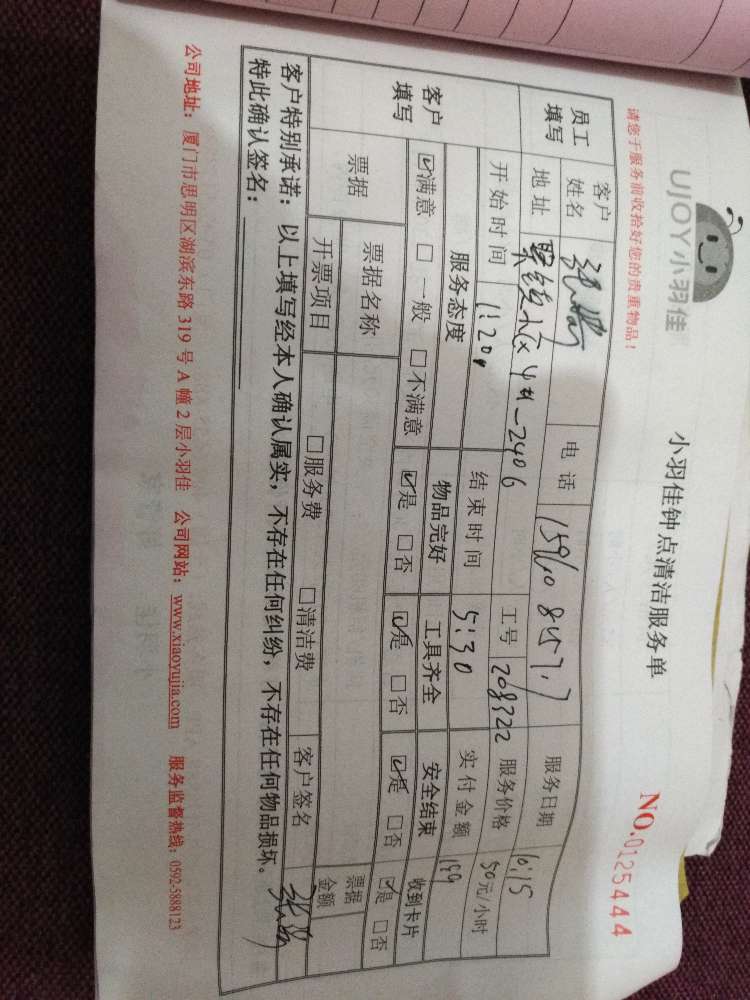 UJOY小羽佳
小羽佳钟点清洁服务单
NO.0125444
请您于服务前收拾好您的贵重物品！
员工填写 客户姓名 电话 服务日期 10.15
地址 小区4#-2406 工号 208322 服务价格 50元/小时
开始时间 1:20 结束时间 5:30 实付金额 199
客户填写 服务态度 物品完好 工具齐全 安全结束 收到卡片
☑满意 □一般 □不满意 ☑是 □否 ☑是 □否 ☑是 □否 ☑是 □否
票据 票据名称 □服务费 □清洁费 票据金额
开票项目 客户签名
客户特别承诺：以上填写经本人确认属实，不存在任何纠纷，不存在任何物品损坏。
特此确认签名：
公司地址：厦门市思明区湖滨东路319号A幢2层小羽佳 公司网站：www.xiaoyujia.com 服务监督热线：0592-5888123